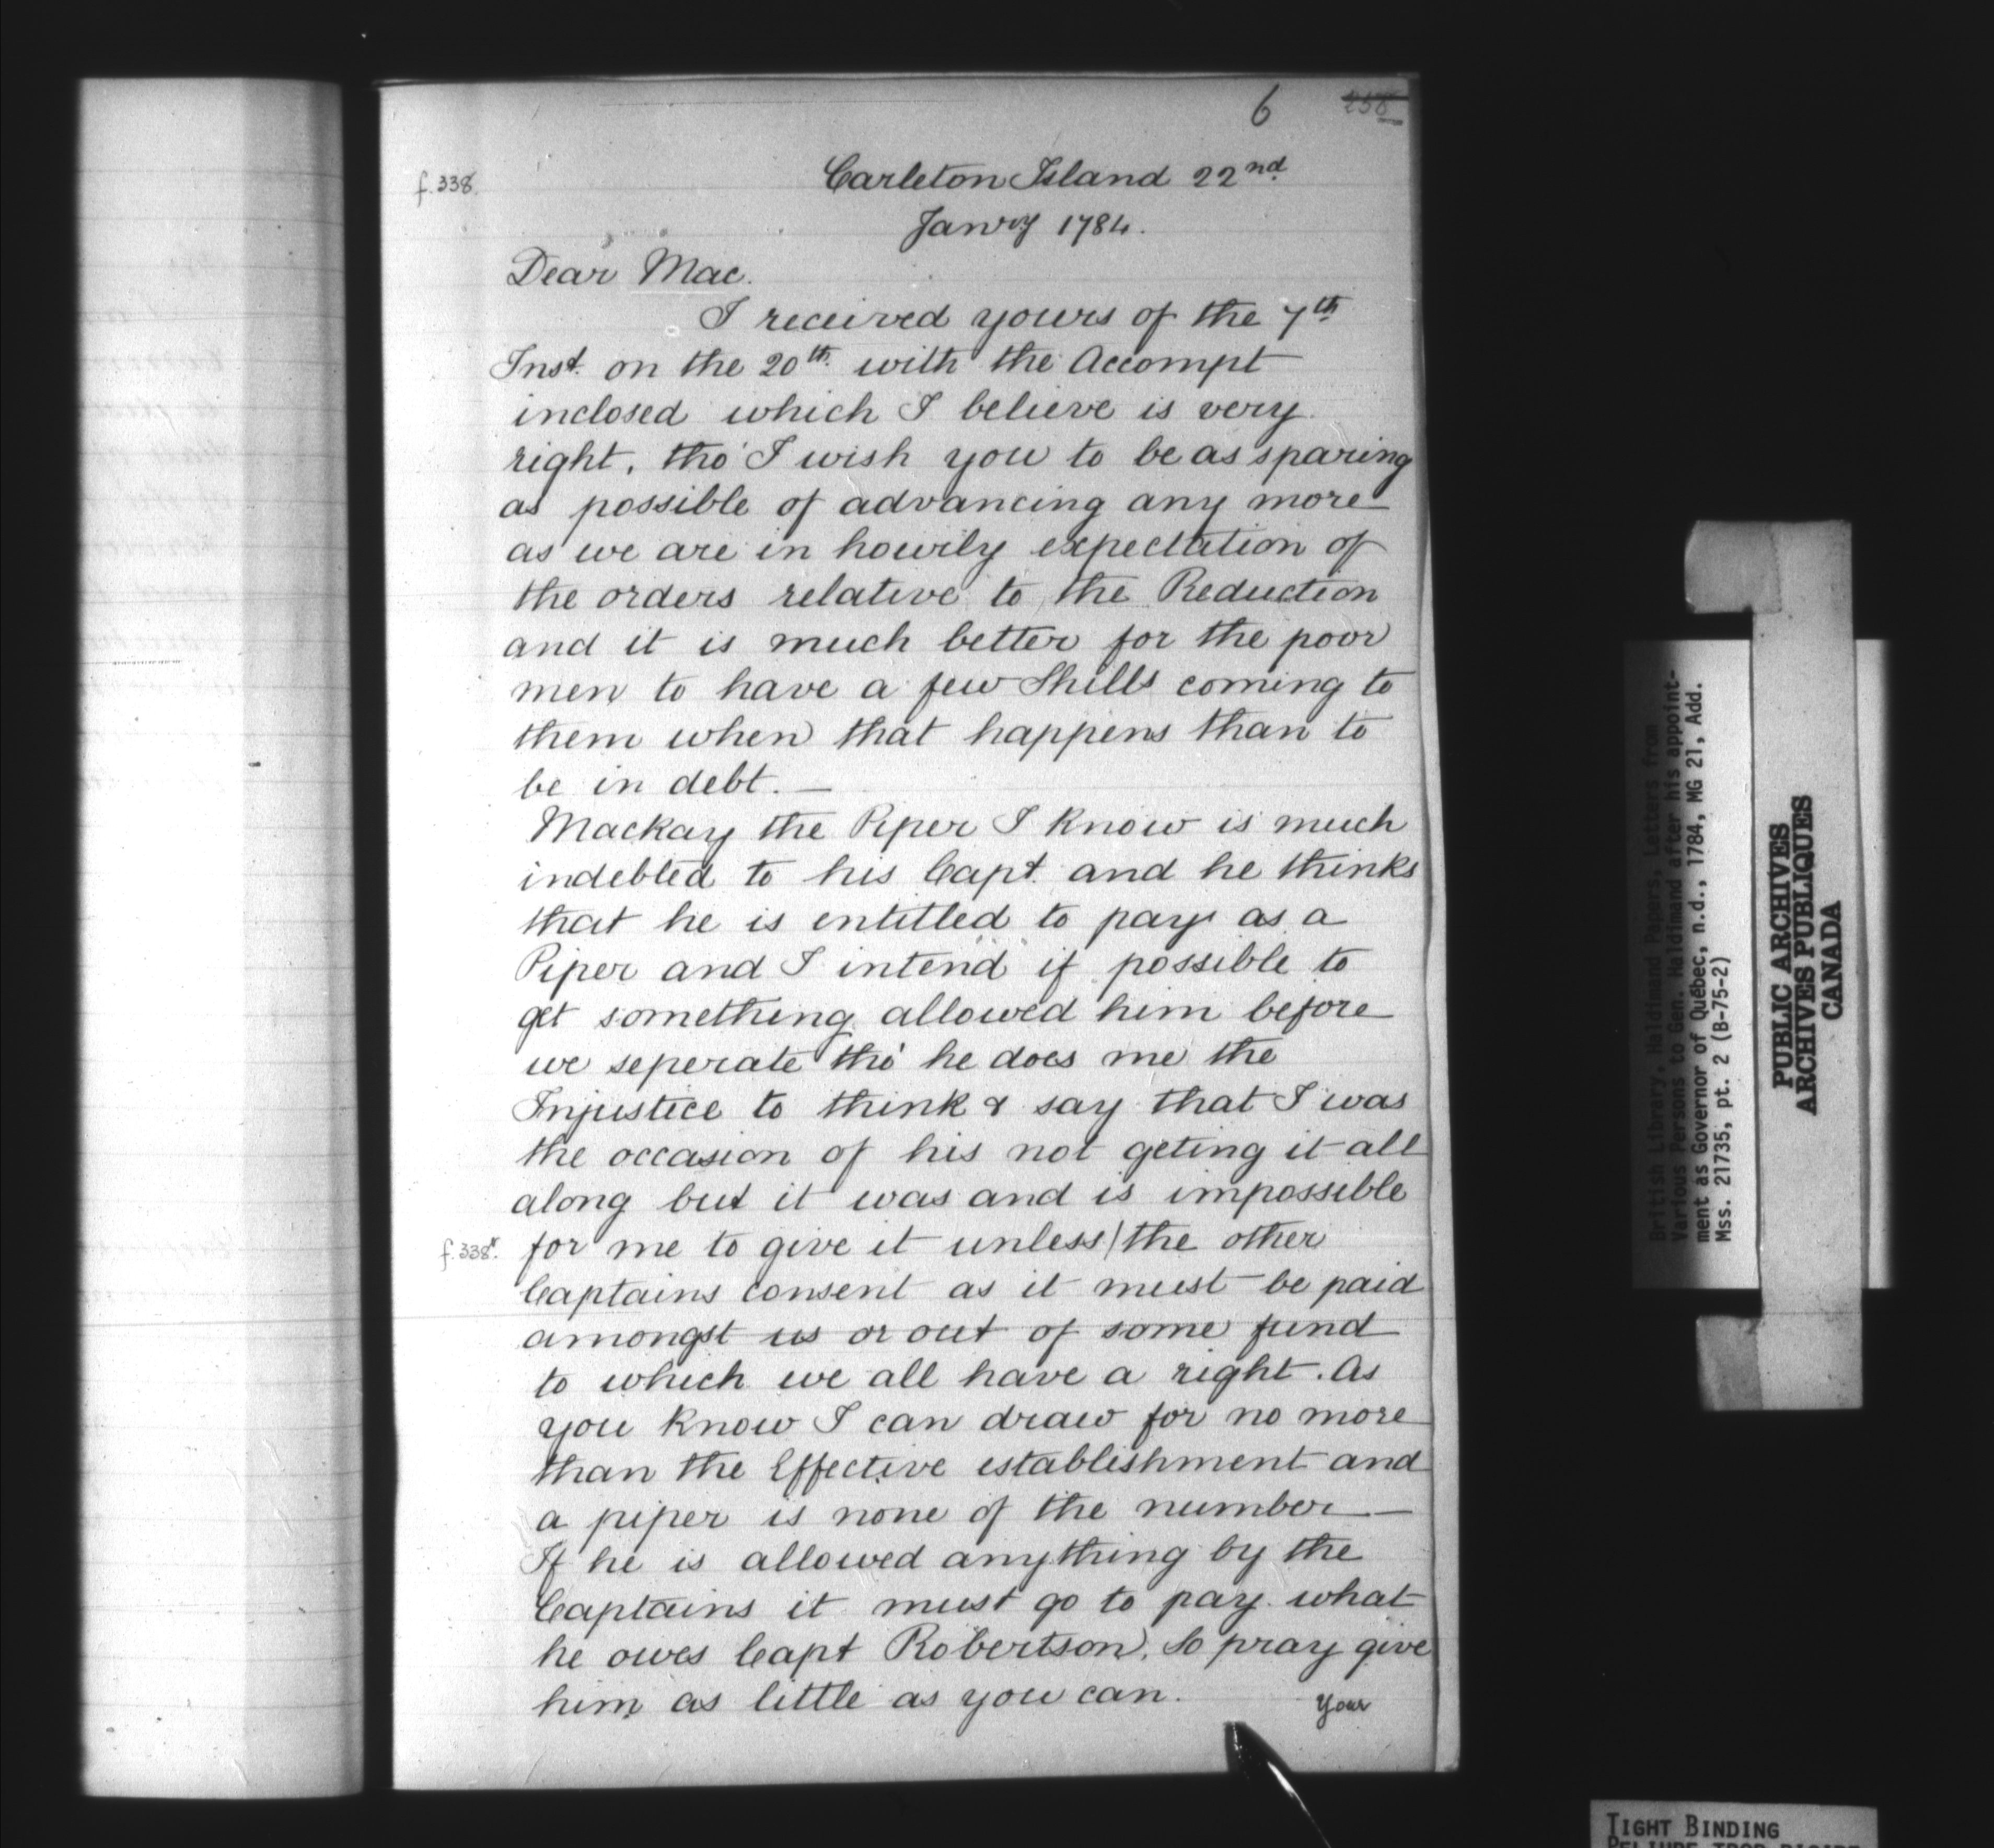 6 258
f.338.
Carleton Island 22nd
Janry 1784.
Dear Mac.
I received yours of the 7th
Inst. on the 20th. with the Accompt
inclosed which I believe is very
right, tho' I wish you to be as sparing
as possible of advancing any more
as we are in hourly expectation of
the orders relative to the Reduction
and it is much better for the poor
men to have a few Shills coming to
them when that happens than to
be in debt. —
Mackay the Piper I know is much
indebted to his Capt. and he thinks
that he is entitled to pay as a
Piper and I intend if possible to
get something allowed him before
we seperate tho' he does me the
Injustice to think & say that I was
the occasion of his not geting it all
along but it was and is impossible
f.338v. for me to give it unless/the other
Captains consent as it must be paid
amongst us or out of some fund
to which we all have a right. As
you know I can draw for no more
than the Effective establishment and
a piper is none of the number —
If he is allowed anything by the
Captains it must go to pay what
he owes Capt Robertson, So pray give
him as little as you can.
Your
British Library, Haldimand Papers, Letters from
Various Persons to Gen. Haldimand after his appoint-
ment as Governor of Québec, n.d., 1784, MG 21, Add.
Mss. 21735, pt. 2 (B-75-2)
PUBLIC ARCHIVES
ARCHIVES PUBLIQUES
CANADA
TIGHT BINDING